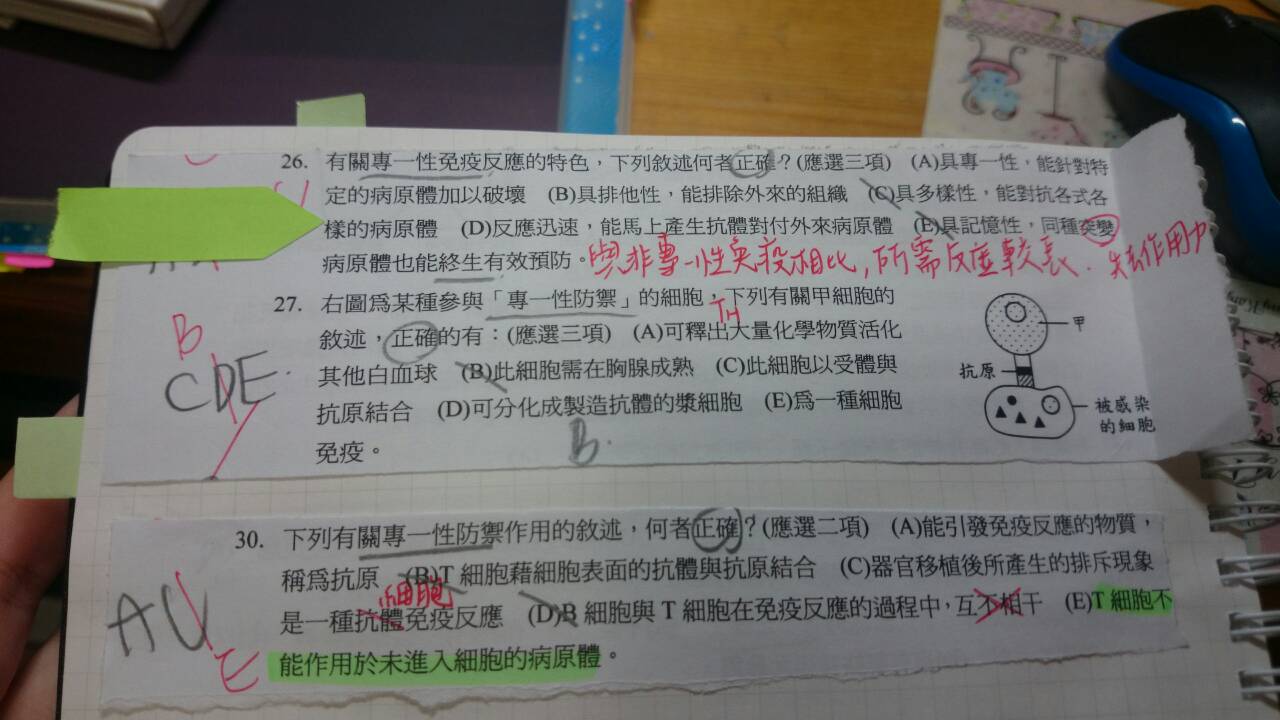 26. 有關專一性免疫反應的特色，下列敘述何者正確？(應選三項) (A)具專一性，能針對特
定的病原體加以破壞 (B)具排他性，能排除外來的組織 (C)具多樣性，能對抗各式各
樣的病原體 (D)反應迅速，能馬上產生抗體對付外來病原體 (E)具記憶性，同種突變
病原體也能終生有效預防。與非專一性免疫相比，所需反應較長. 失去作用
27. 右圖為某種參與「專一性防禦」的細胞，下列有關甲細胞的
TH
敘述，正確的有：(應選三項) (A)可釋出大量化學物質活化
其他白血球 (B)此細胞需在胸腺成熟 (C)此細胞以受體與
抗原結合 (D)可分化成製造抗體的漿細胞 (E)為一種細胞
免疫。
B
CDE.
B
甲
抗原
被感染
的細胞
30. 下列有關專一性防禦作用的敘述，何者正確？(應選二項) (A)能引發免疫反應的物質，
稱為抗原 (B)T 細胞藉細胞表面的抗體與抗原結合 (C)器官移植後所產生的排斥現象
細胞
是一種抗體免疫反應 (D)B 細胞與 T 細胞在免疫反應的過程中，互不相干 (E)T 細胞不
能作用於未進入細胞的病原體。
AC
E